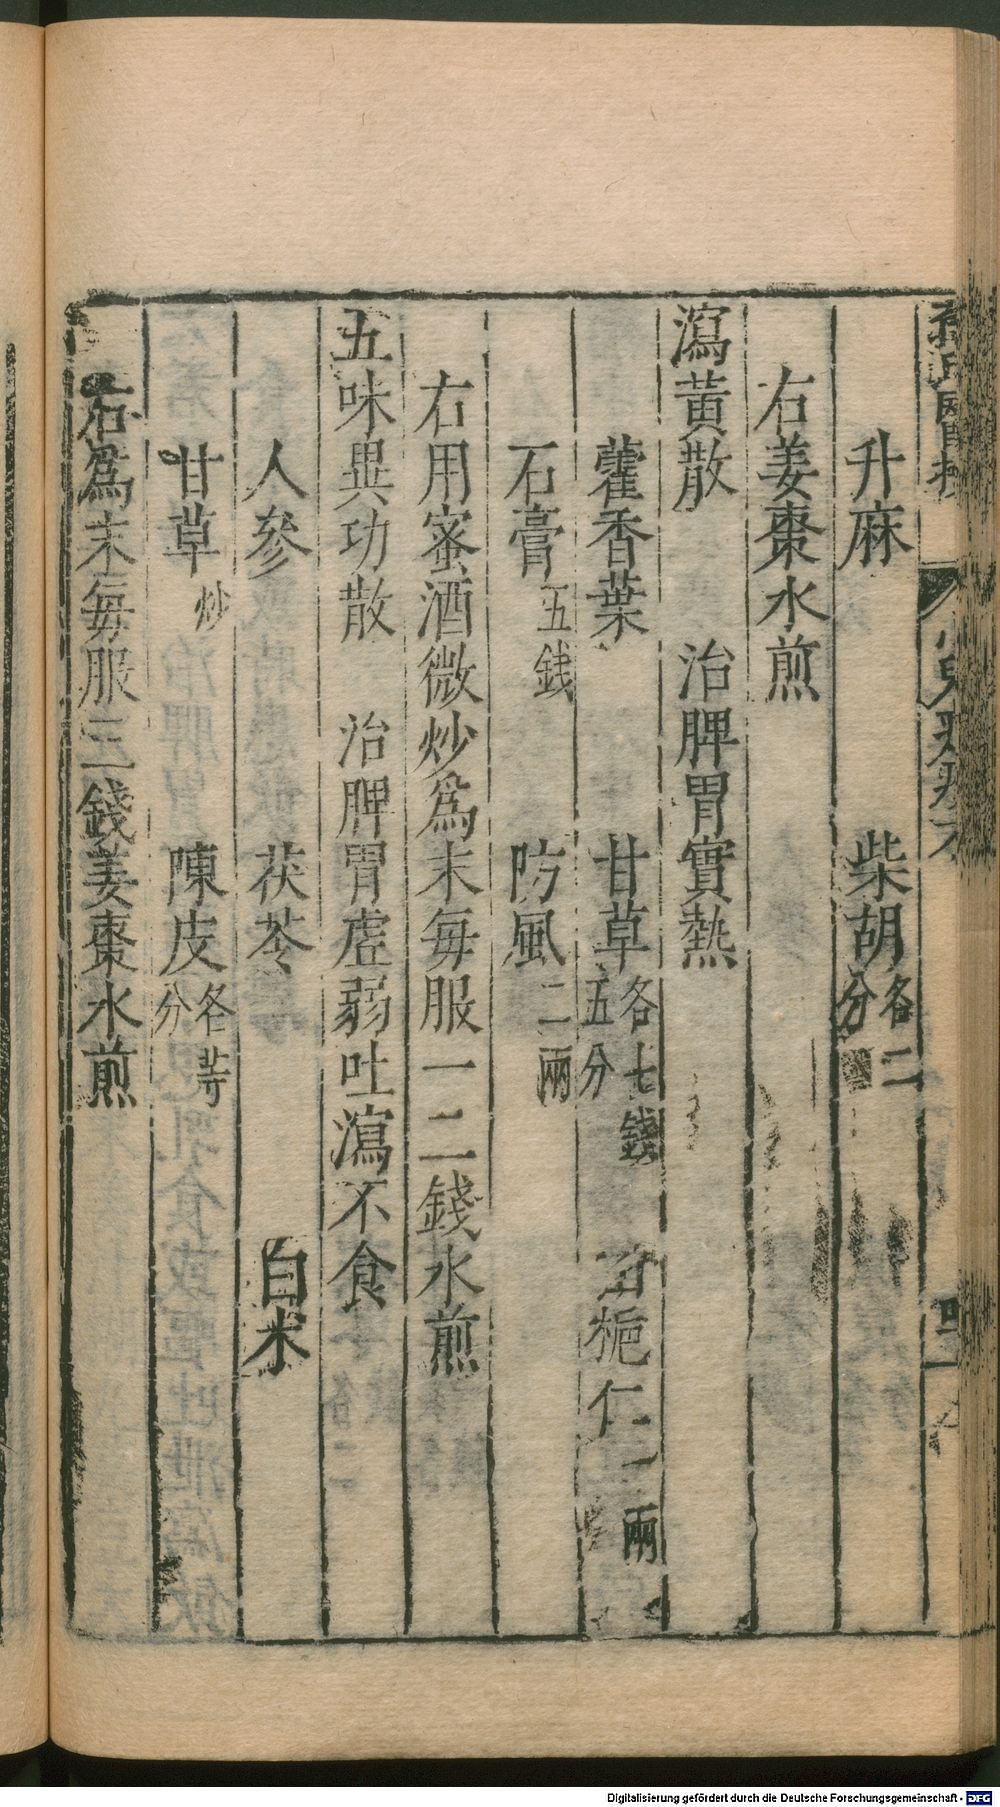 升麻　柴胡各二分
右姜棗水煎
瀉黃散　治脾胃實熱
藿香葉　甘草各七錢五分　山梔仁二兩
石膏五錢　防風二兩
右用蜜酒微炒爲末每服一二錢水煎
五味異功散　治脾胃虛弱吐瀉不食
人參　茯苓　白术
甘草炒　陳皮各等分
右爲末每服三錢姜棗水煎
Digitalisierung gefördert durch die Deutsche Forschungsgemeinschaft - DFG